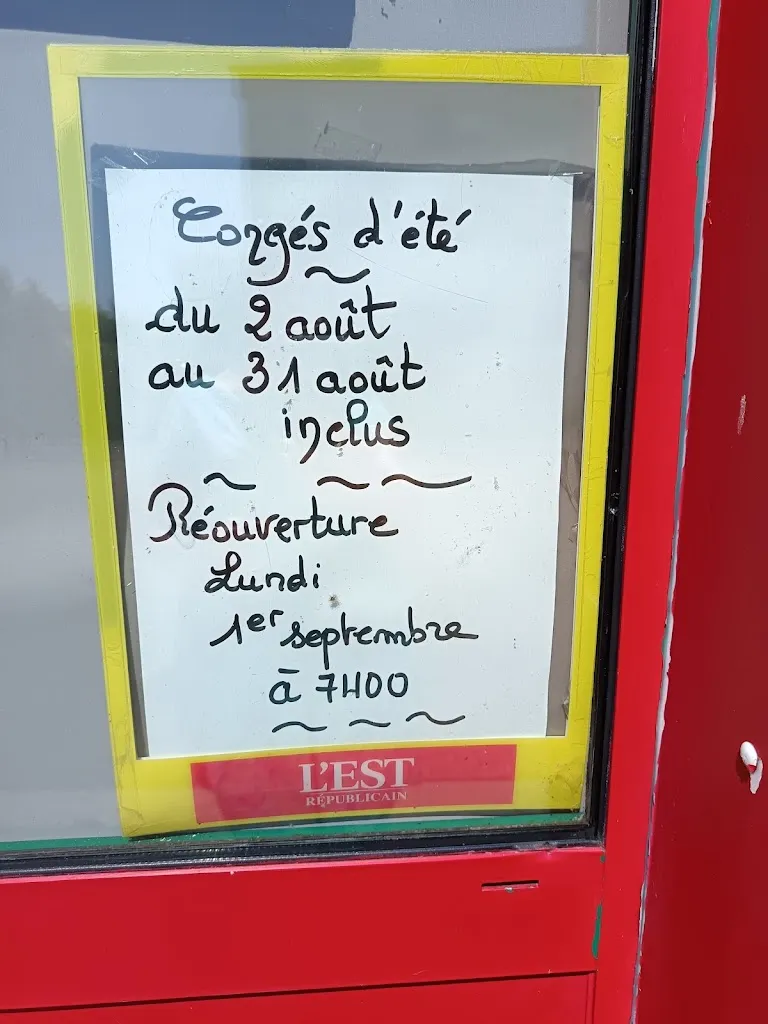 Congés d'été
du 2 août
au 31 août
inclus
Réouverture
Lundi
1er septembre
à 7H00
L'EST
RÉPUBLICAIN